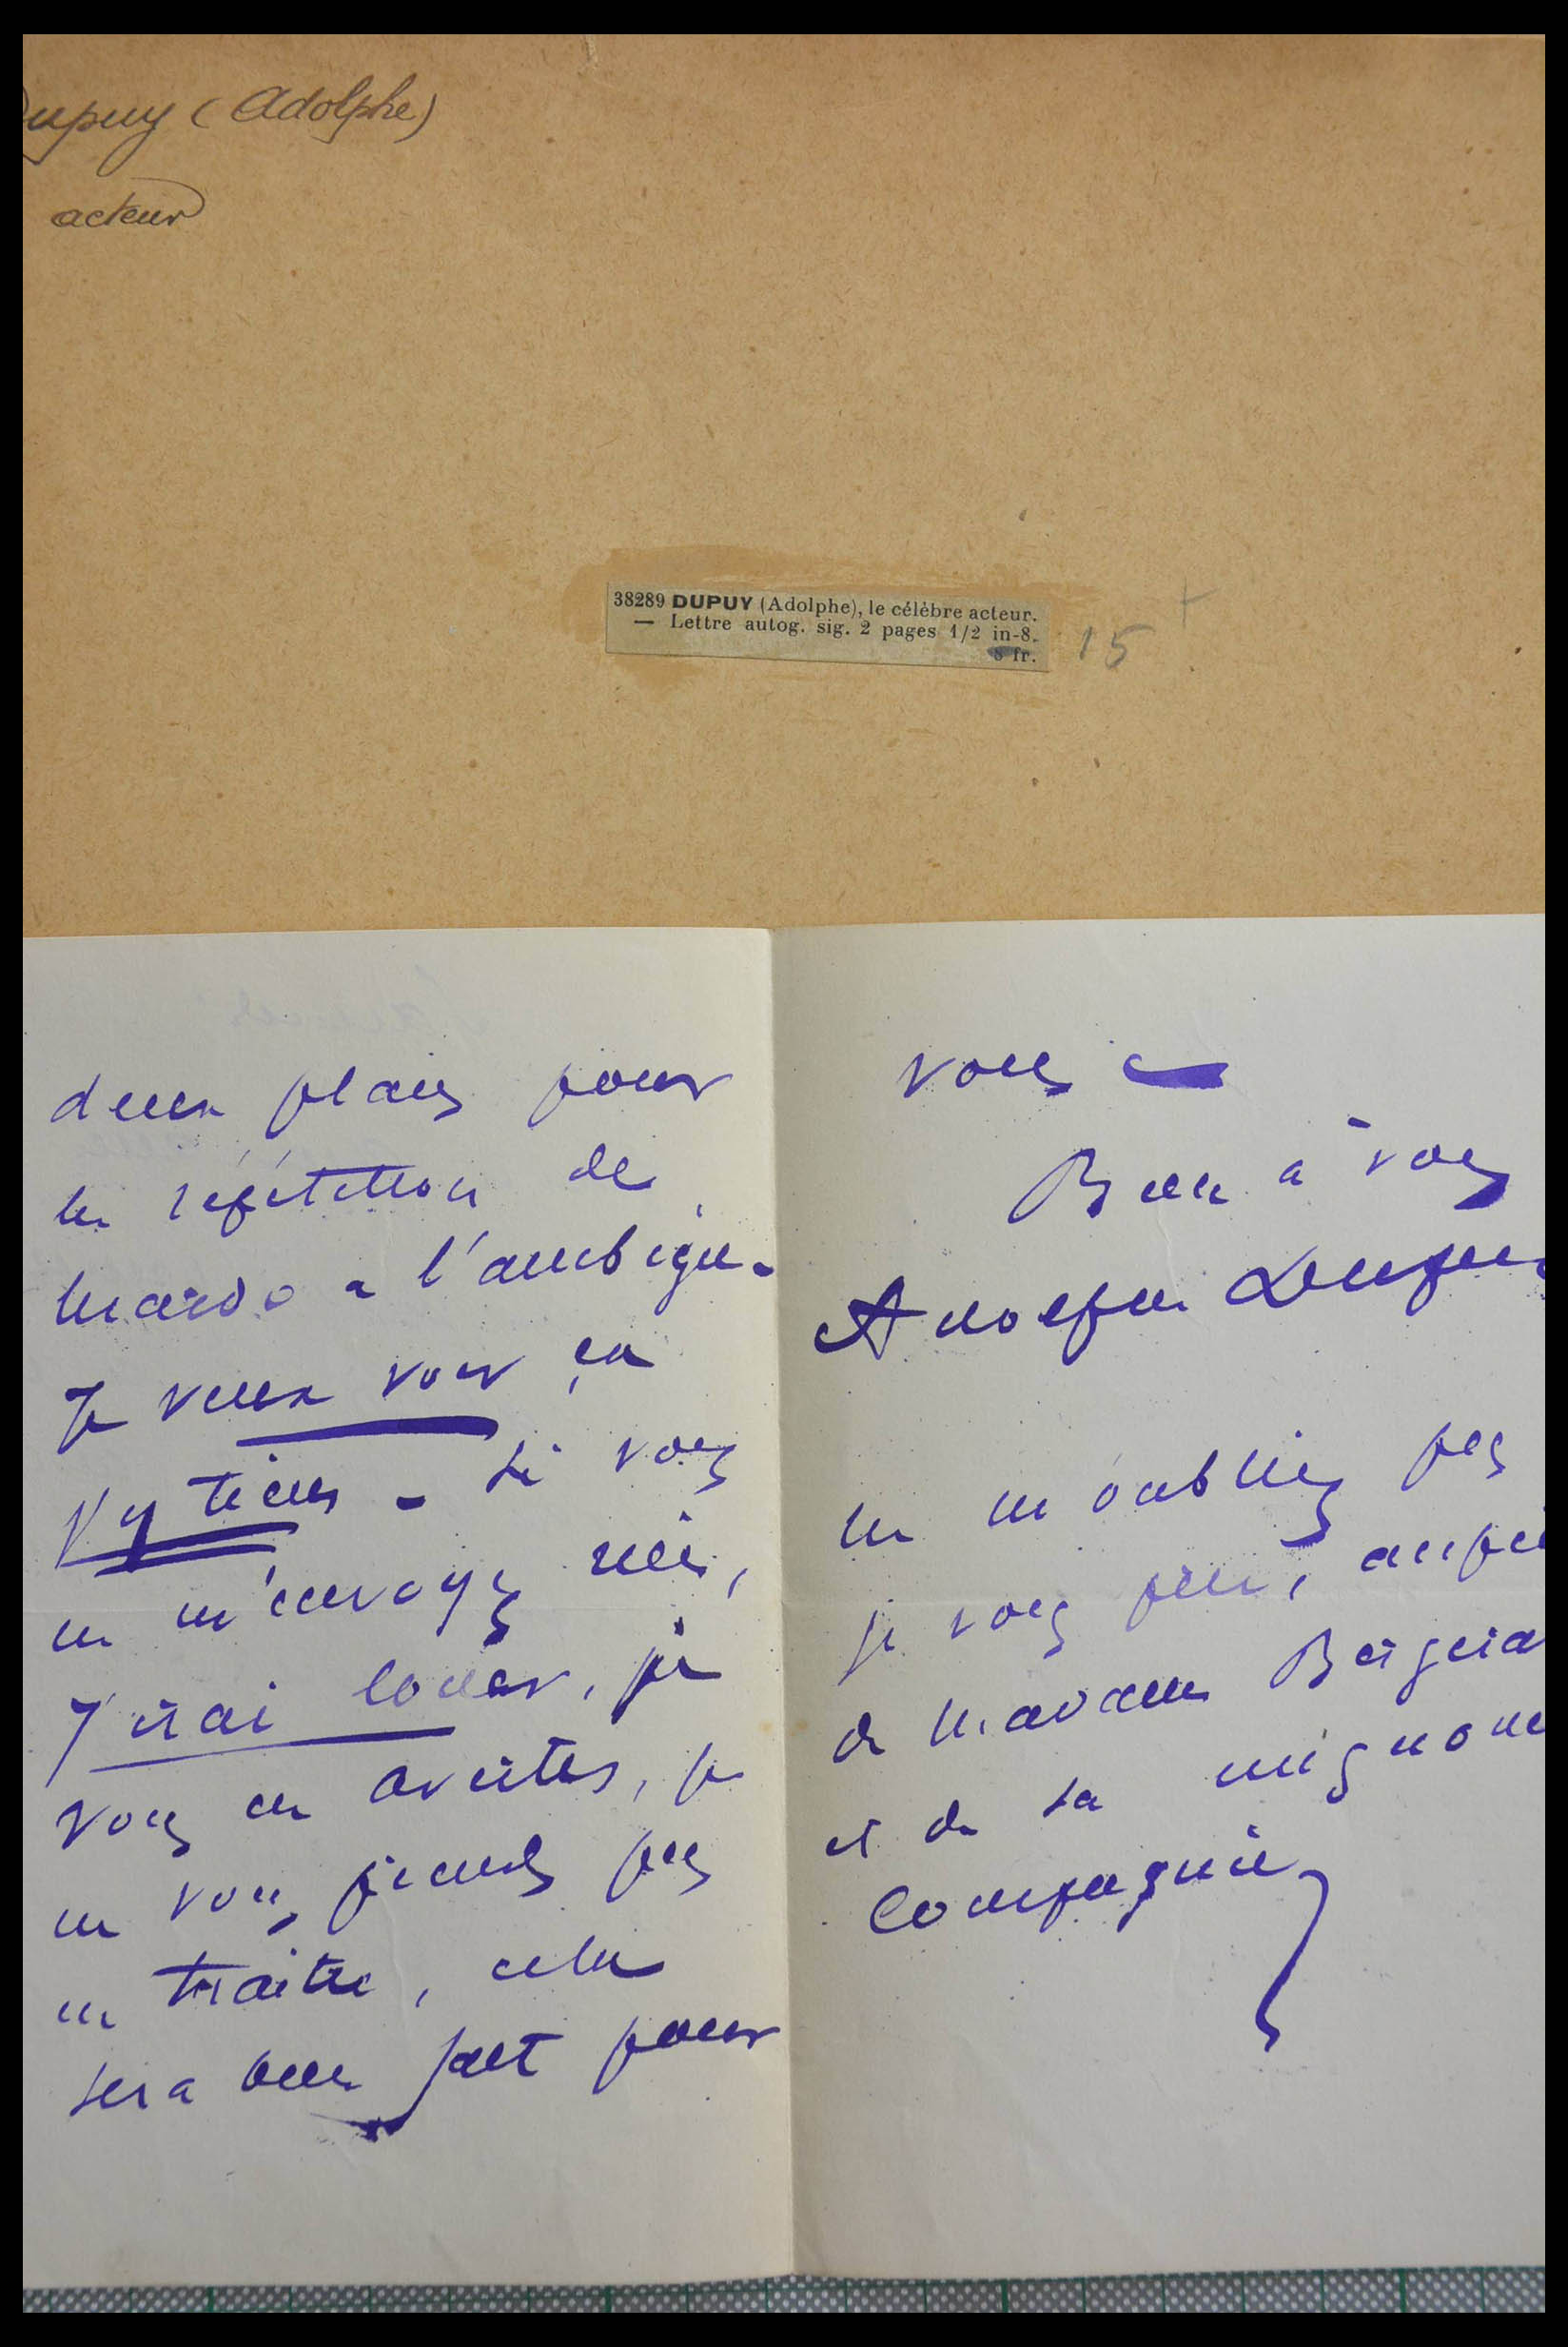 Dupuy (Adolphe)
acteur
38289 DUPUY (Adolphe), le célèbre acteur.
— Lettre autog. sig. 2 pages 1/2 in-8.
8 fr.
15
deux places pour
la répétition de
à l'ambigu.
Je veux voir ça
j'y tiens - si vous
ne m'envoyez rien,
j'irai louer, je
vous en avertis, je
ne vous prends pas
en traître, cela
sera bien fait pour
vous
Bien à vous
Adolphe Dupuy
ne m'oubliez pas
je vous prie, auprès
de madame Bergera
et de sa mignonne
compagnie